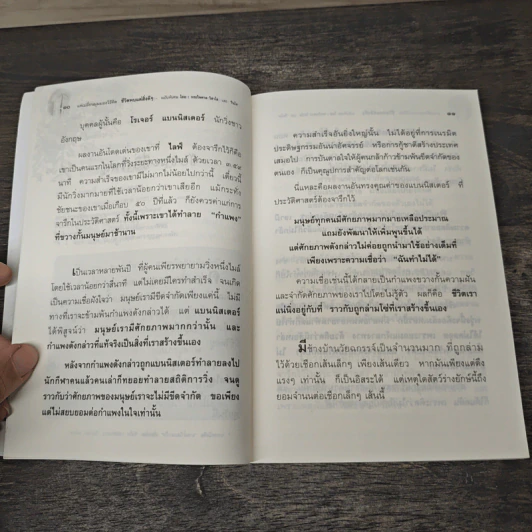 บุคคลผู้นั้นคือ โรเจอร์ แบนนิสเตอร์ นักวิ่งชาว
อังกฤษ
ผลงานอันโดดเด่นของเขาที่ ไลฟ์ ต้องจารึกไว้ก็คือ
เขาเป็นคนแรกในโลกที่วิ่งระยะทางหนึ่งไมล์ ด้วยเวลา ๓.๕๙
นาที ความสำเร็จของเขามีไม่มากไม่น้อยไปกว่านี้ เดี๋ยวนี้
มีนักวิ่งมากมายที่ใช้เวลาน้อยกว่าเขาเสียอีก แม้กระทั่ง
ชัยชนะของเขาเมื่อเกือบ ๕๐ ปีที่แล้ว ก็ยังควรค่าแก่การ
จารึกในประวัติศาสตร์ ทั้งนี้เพราะเขาได้ทำลาย "กำแพง"
ที่ขวางกั้นมนุษย์มาช้านาน
เป็นเวลาหลายพันปี ที่ผู้คนเพียรพยายามวิ่งหนึ่งไมล์
โดยใช้เวลาน้อยกว่าสี่นาที แต่ไม่เคยมีใครทำสำเร็จ จนเกิด
เป็นความเชื่อฝังใจว่า มนุษย์เรามีขีดจำกัดเพียงแค่นี้ ไม่มี
ทางที่เราจะข้ามพ้นกำแพงดังกล่าวได้ แต่ แบนนิสเตอร์
ได้พิสูจน์ว่า มนุษย์เรามีศักยภาพมากกว่านั้น และ
กำแพงดังกล่าวที่แท้จริงเป็นสิ่งที่เราสร้างขึ้นเอง
หลังจากกำแพงดังกล่าวถูกแบนนิสเตอร์ทำลายลงไป
นักกีฬาคนแล้วคนเล่าก็ทยอยทำลายสถิติการวิ่ง จนดู
ราวกับว่าศักยภาพของมนุษย์เราจะไม่มีขีดจำกัด ขอเพียง
แต่ไม่สยบยอมต่อกำแพงในใจเท่านั้น
๑๑
ความสำเร็จอันยิ่งใหญ่นั้น ไม่ได้อยู่ที่การเนรมิต
ประดิษฐกรรมอันน่าอัศจรรย์ หรือการกู้ชาติสร้างประเทศ
เสมอไป การบันดาลใจให้ผู้คนกล้าก้าวข้ามพ้นขีดจำกัดของ
ตนเอง ก็เป็นคุณูปการสำคัญต่อโลกเช่นกัน
นี่แหละคือผลงานอันทรงคุณค่าของแบนนิสเตอร์ ที่
ประวัติศาสตร์ต้องจารึกไว้
มนุษย์ทุกคนมีศักยภาพมากมายเหลือประมาณ
แถมยังพัฒนาให้เพิ่มพูนขึ้นได้
แต่ศักยภาพดังกล่าวไม่ค่อยถูกนำมาใช้อย่างเต็มที่
เพียงเพราะความเชื่อว่า "ฉันทำไม่ได้"
ความเชื่อเช่นนี้ได้กลายเป็นกำแพงขวางกั้นความฝัน
และจำกัดศักยภาพของเราไปโดยไม่รู้ตัว ผลก็คือ ชีวิตเรา
แน่นิ่งอยู่กับที่ ราวกับถูกล่ามโซ่ที่เราสร้างขึ้นเอง
มีช้างบ้านวัยฉกรรจ์เป็นจำนวนมาก ที่ถูกล่าม
ไว้ด้วยเชือกเส้นเล็กๆ เพียงเส้นเดียว หากมันเพียงแต่ดึง
แรงๆ เท่านั้น ก็เป็นอิสระได้ แต่เหตุใดสัตว์ร่างยักษ์นี้ถึง
ยอมจำนนต่อเชือกเล็กๆ เส้นนี้